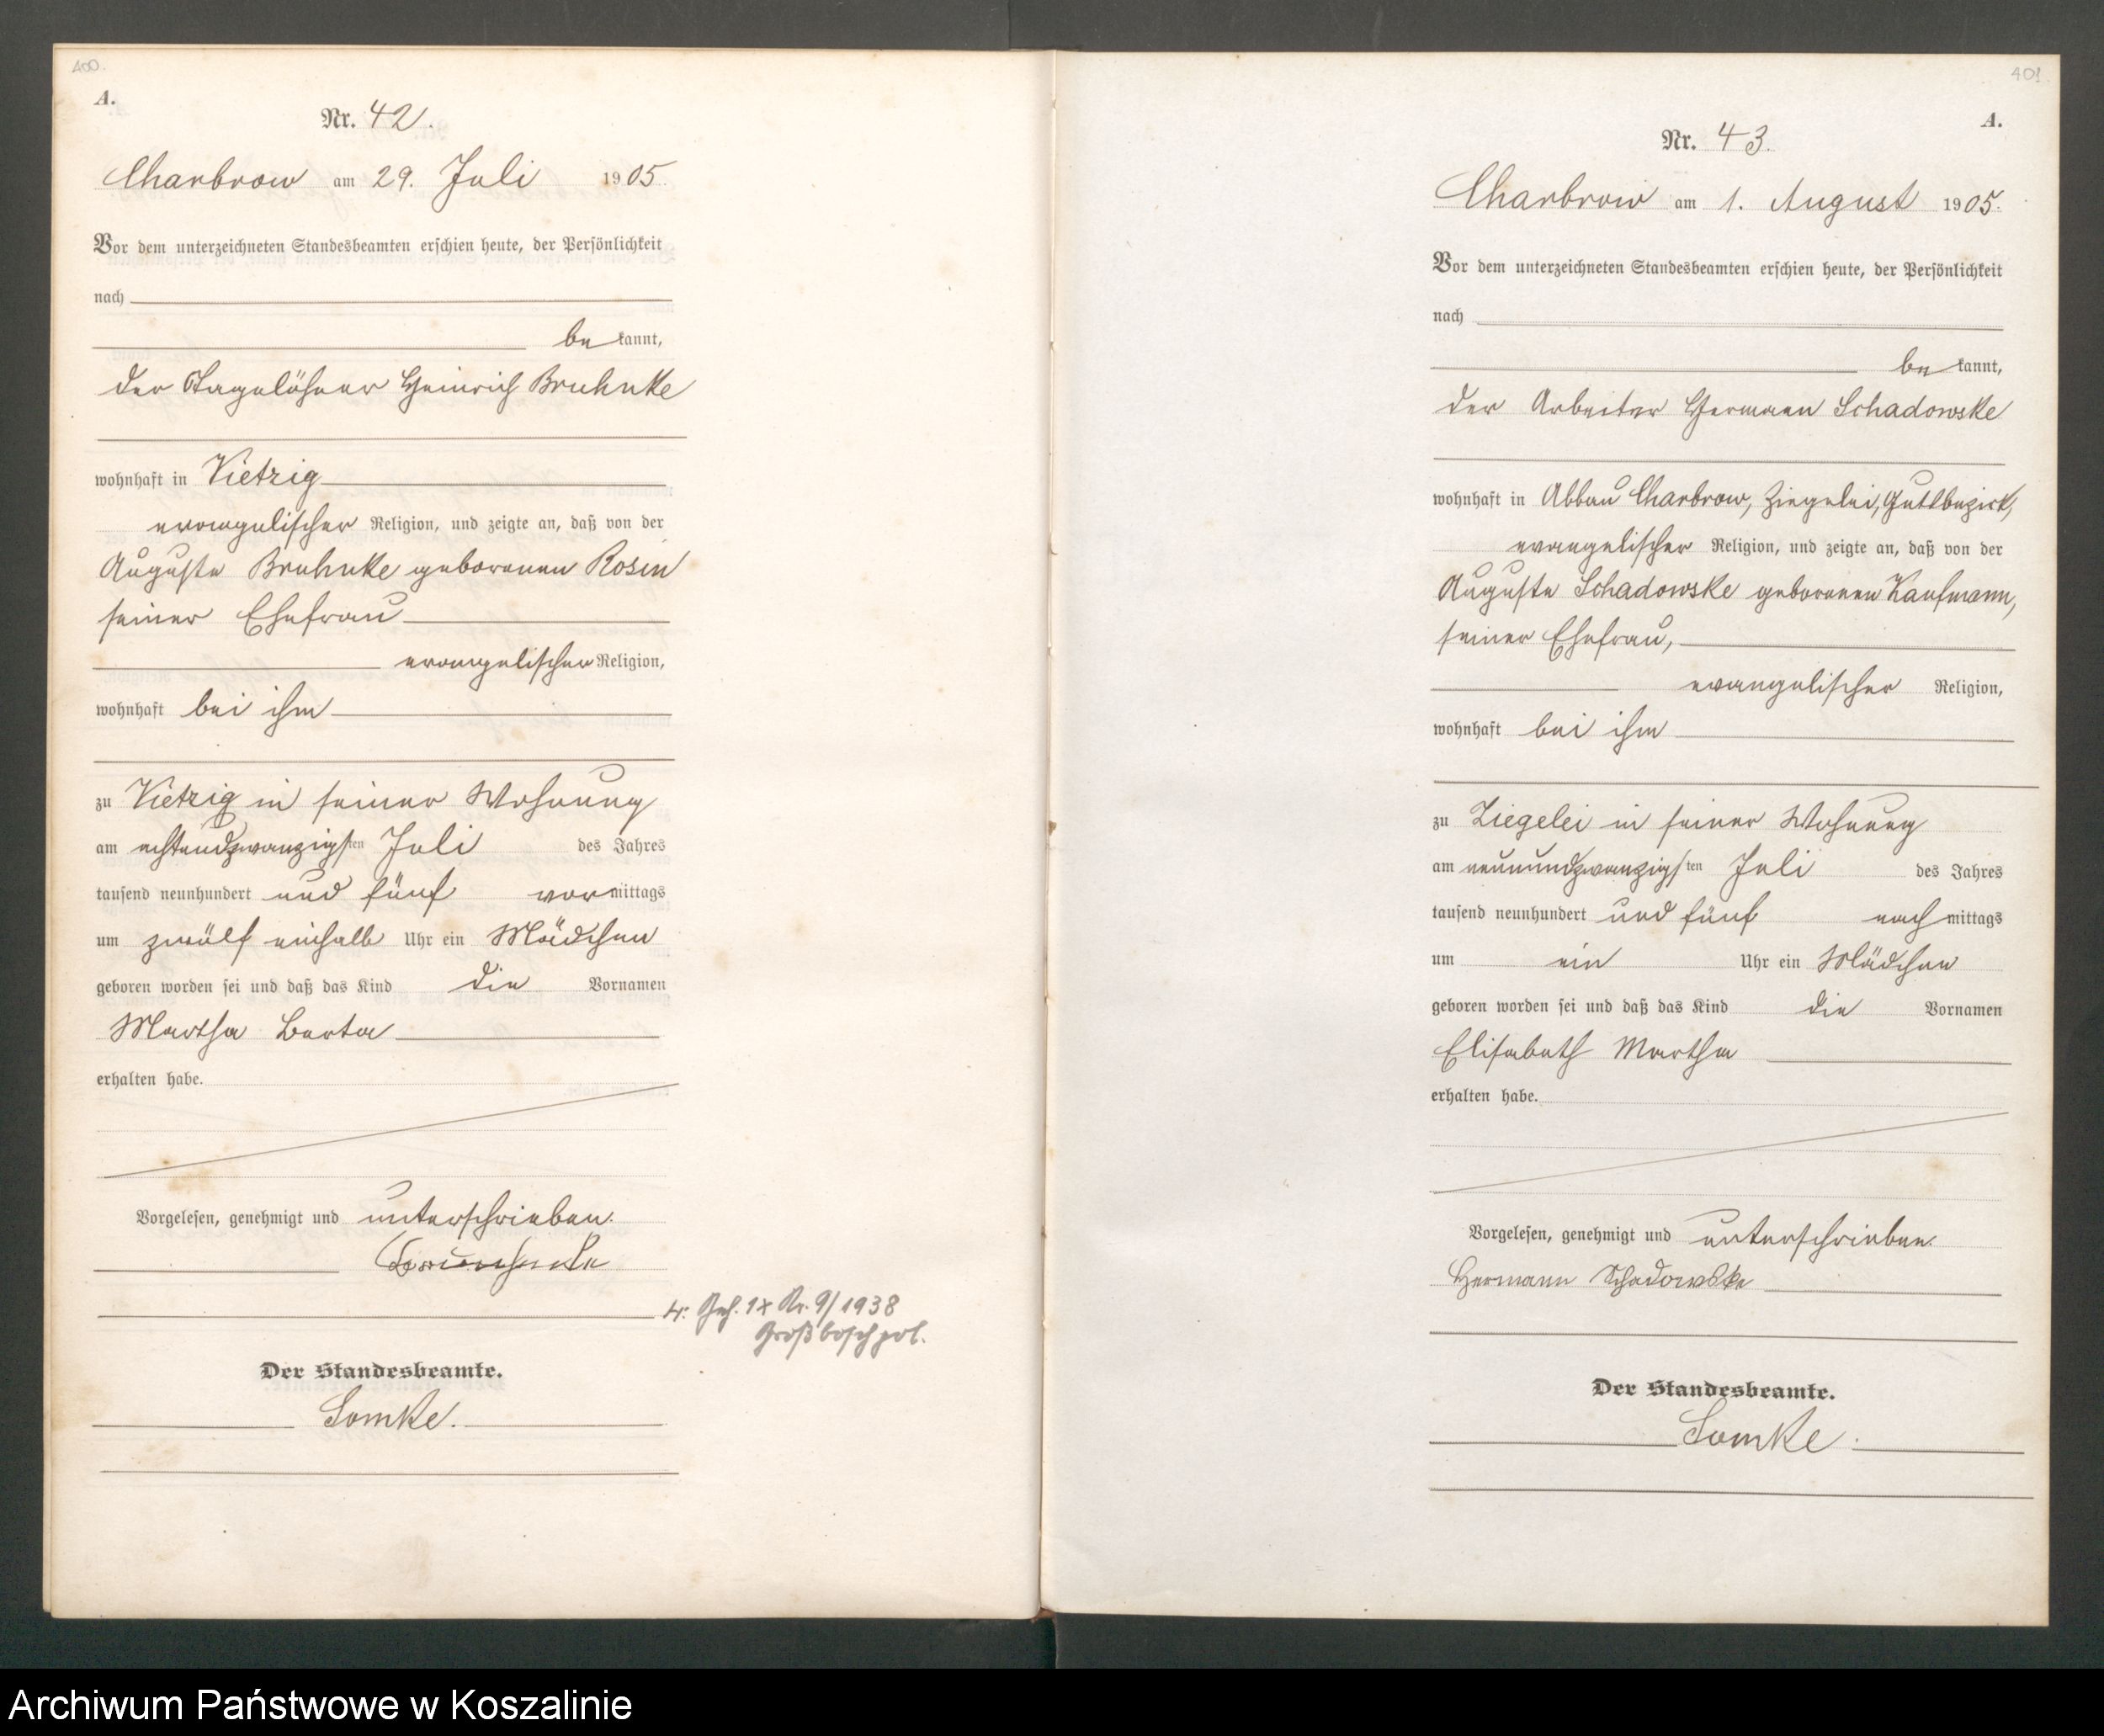 400.
A.
Nr. 42.
Charbrow am 29. Juli 1905.
Vor dem unterzeichneten Standesbeamten erschien heute, der Persönlichkeit
nach
be kannt,
der Tagelöhner Heinrich Bruhnke
wohnhaft in Vietzig
evangelischer Religion, und zeigte an, daß von der
Auguste Bruhnke geborenen Rosin
seiner Ehefrau
evangelischer Religion,
wohnhaft bei ihm
zu Vietzig in seiner Wohnung
am achtundzwanzigsten Juli des Jahres
tausend neunhundert und fünf vormittags
um zwölf einhalb Uhr ein Mädchen
geboren worden sei und daß das Kind die Vornamen
Martha Berta
erhalten habe.
Vorgelesen, genehmigt und unterschrieben.
4: Geh. 1x Nr. 9/1938
Großboschpol.
Der Standesbeamte.
Lomke.
401.
A.
Nr. 43.
Charbrow am 1. August 1905.
Vor dem unterzeichneten Standesbeamten erschien heute, der Persönlichkeit
nach
be kannt,
der Arbeiter Hermann Schadowske
wohnhaft in Abbau Charbrow, Ziegelei, Gutsbezirk,
evangelischer Religion, und zeigte an, daß von der
Auguste Schadowske geborenen Kaufmann,
seiner Ehefrau,
evangelischer Religion,
wohnhaft bei ihm
zu Ziegelei in seiner Wohnung
am neunundzwanzigsten Juli des Jahres
tausend neunhundert und fünf nachmittags
um ein Uhr ein Mädchen
geboren worden sei und daß das Kind die Vornamen
Elisabeth Martha
erhalten habe.
Vorgelesen, genehmigt und unterschrieben.
Hermann Schadowske
Der Standesbeamte.
Lomke.
Archiwum Państwowe w Koszalinie